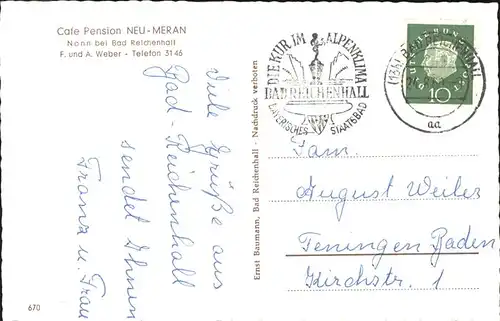 Cafe Pension NEU-MERAN
Nonn bei Bad Reichenhall
F. und A. Weber - Telefon 3146
Viele Grüße aus
Bad-Reichenhall
sendet Ihnen
Franz u. Frau
670
Ernst Baumann, Bad Reichenhall - Nachdruck verboten
DIE KUR IM ALPENKLIMA
BAD REICHENHALL
BAYERISCHES STAATSBAD
DEUTSCHE BUNDESPOST
10
(13b) BAD REICHENHALL
aa
Fam.
August Weiler
Teningen Baden
Kirchstr. 1